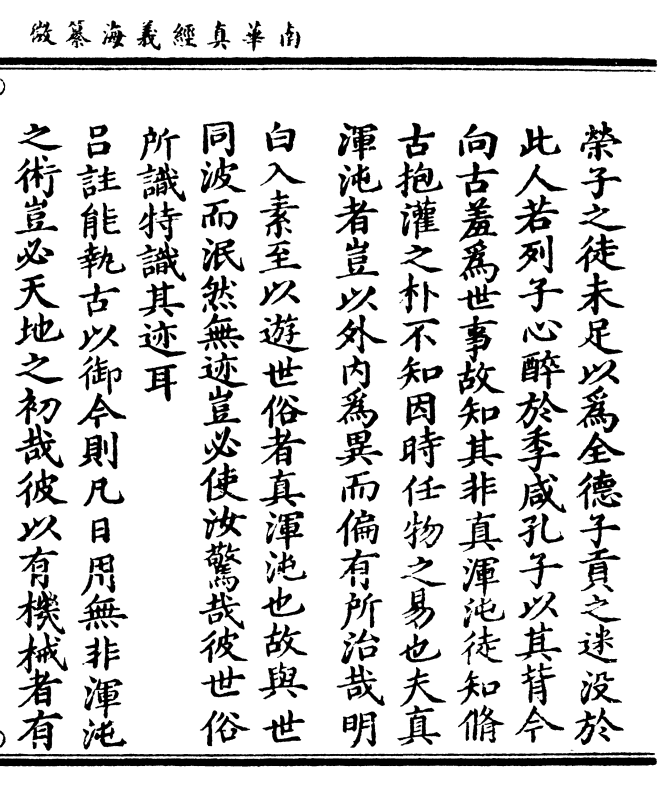 南華真經義海纂微
榮子之徒未足以為全德子貢之迷没於
此人若列子心醉於季咸孔子以其背今
向古羞為世事故知其非真渾沌徒知脩
古抱灌之朴不知因時任物之易也夫真
渾沌者豈以外内為異而偏有所治哉明
白入素至以遊世俗者真渾沌也故與世
同波而泯然無迹豈必使汝驚哉彼世俗
所識特識其迹耳
吕註能執古以御今則凡日用無非渾沌
之術豈必天地之初哉彼以有機械者有